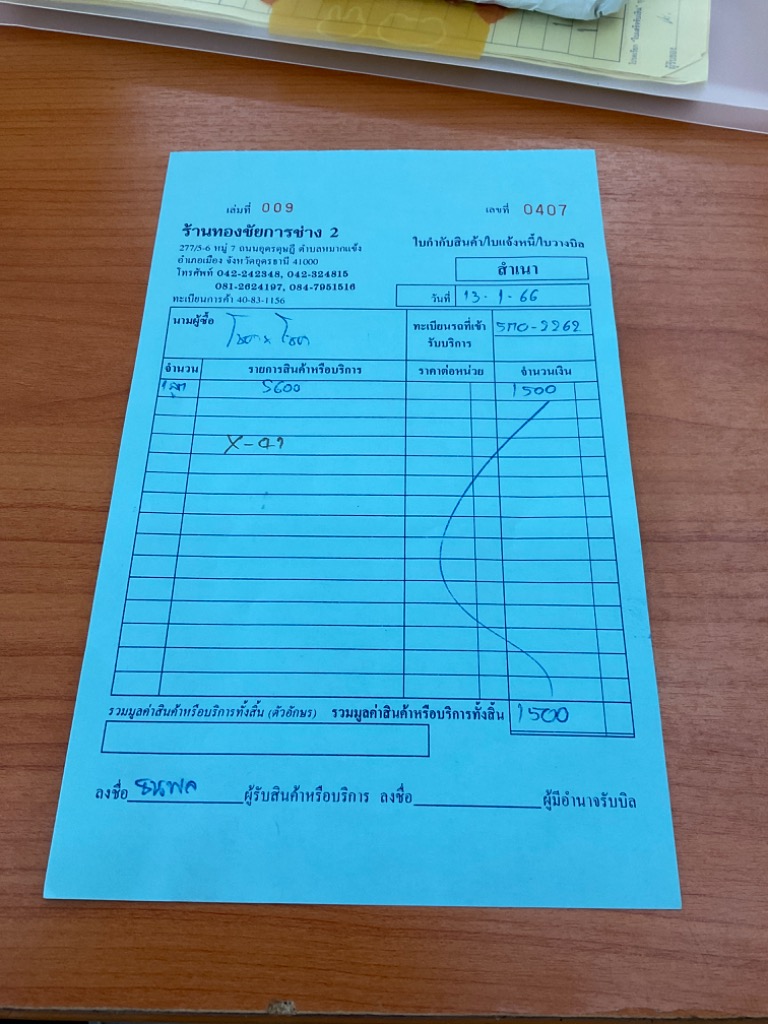 เล่มที่ 009
เลขที่ 0407
ร้านทองชัยการช่าง 2
277/5-6 หมู่ 7 ถนนอุดรดุษฎี ตำบลหมากแข้ง
อำเภอเมือง จังหวัดอุดรธานี 41000
โทรศัพท์ 042-242348, 042-324815
081-2624197, 084-7951516
ทะเบียนการค้า 40-83-1156
ใบกำกับสินค้า/ใบแจ้งหนี้/ใบวางบิล
สำเนา
วันที่ 13-1-66
นามผู้ซื้อ
ทะเบียนรถที่เข้ารับบริการ
-2262
จำนวน รายการสินค้าหรือบริการ ราคาต่อหน่วย จำนวนเงิน
S600 1500
รวมมูลค่าสินค้าหรือบริการทั้งสิ้น (ตัวอักษร) รวมมูลค่าสินค้าหรือบริการทั้งสิ้น 1500
ลงชื่อ ธนพล ผู้รับสินค้าหรือบริการ ลงชื่อ ผู้มีอำนาจรับบิล